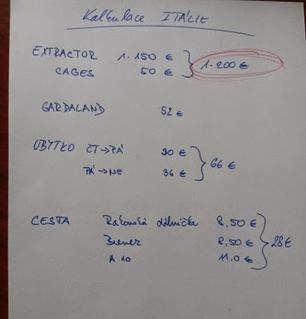 Kalkulace ITÁLIE
EXTRACTOR 1.150 €
CAGES 50 €
1.200 €
GARDALAND 52 €
UBYTKO ČT→PÁ 30 €
PÁ→NE 36 €
66 €
CESTA Rakouská dálnička 8,50 €
Brener 8,50 €
A 10 11.0 €
28 €